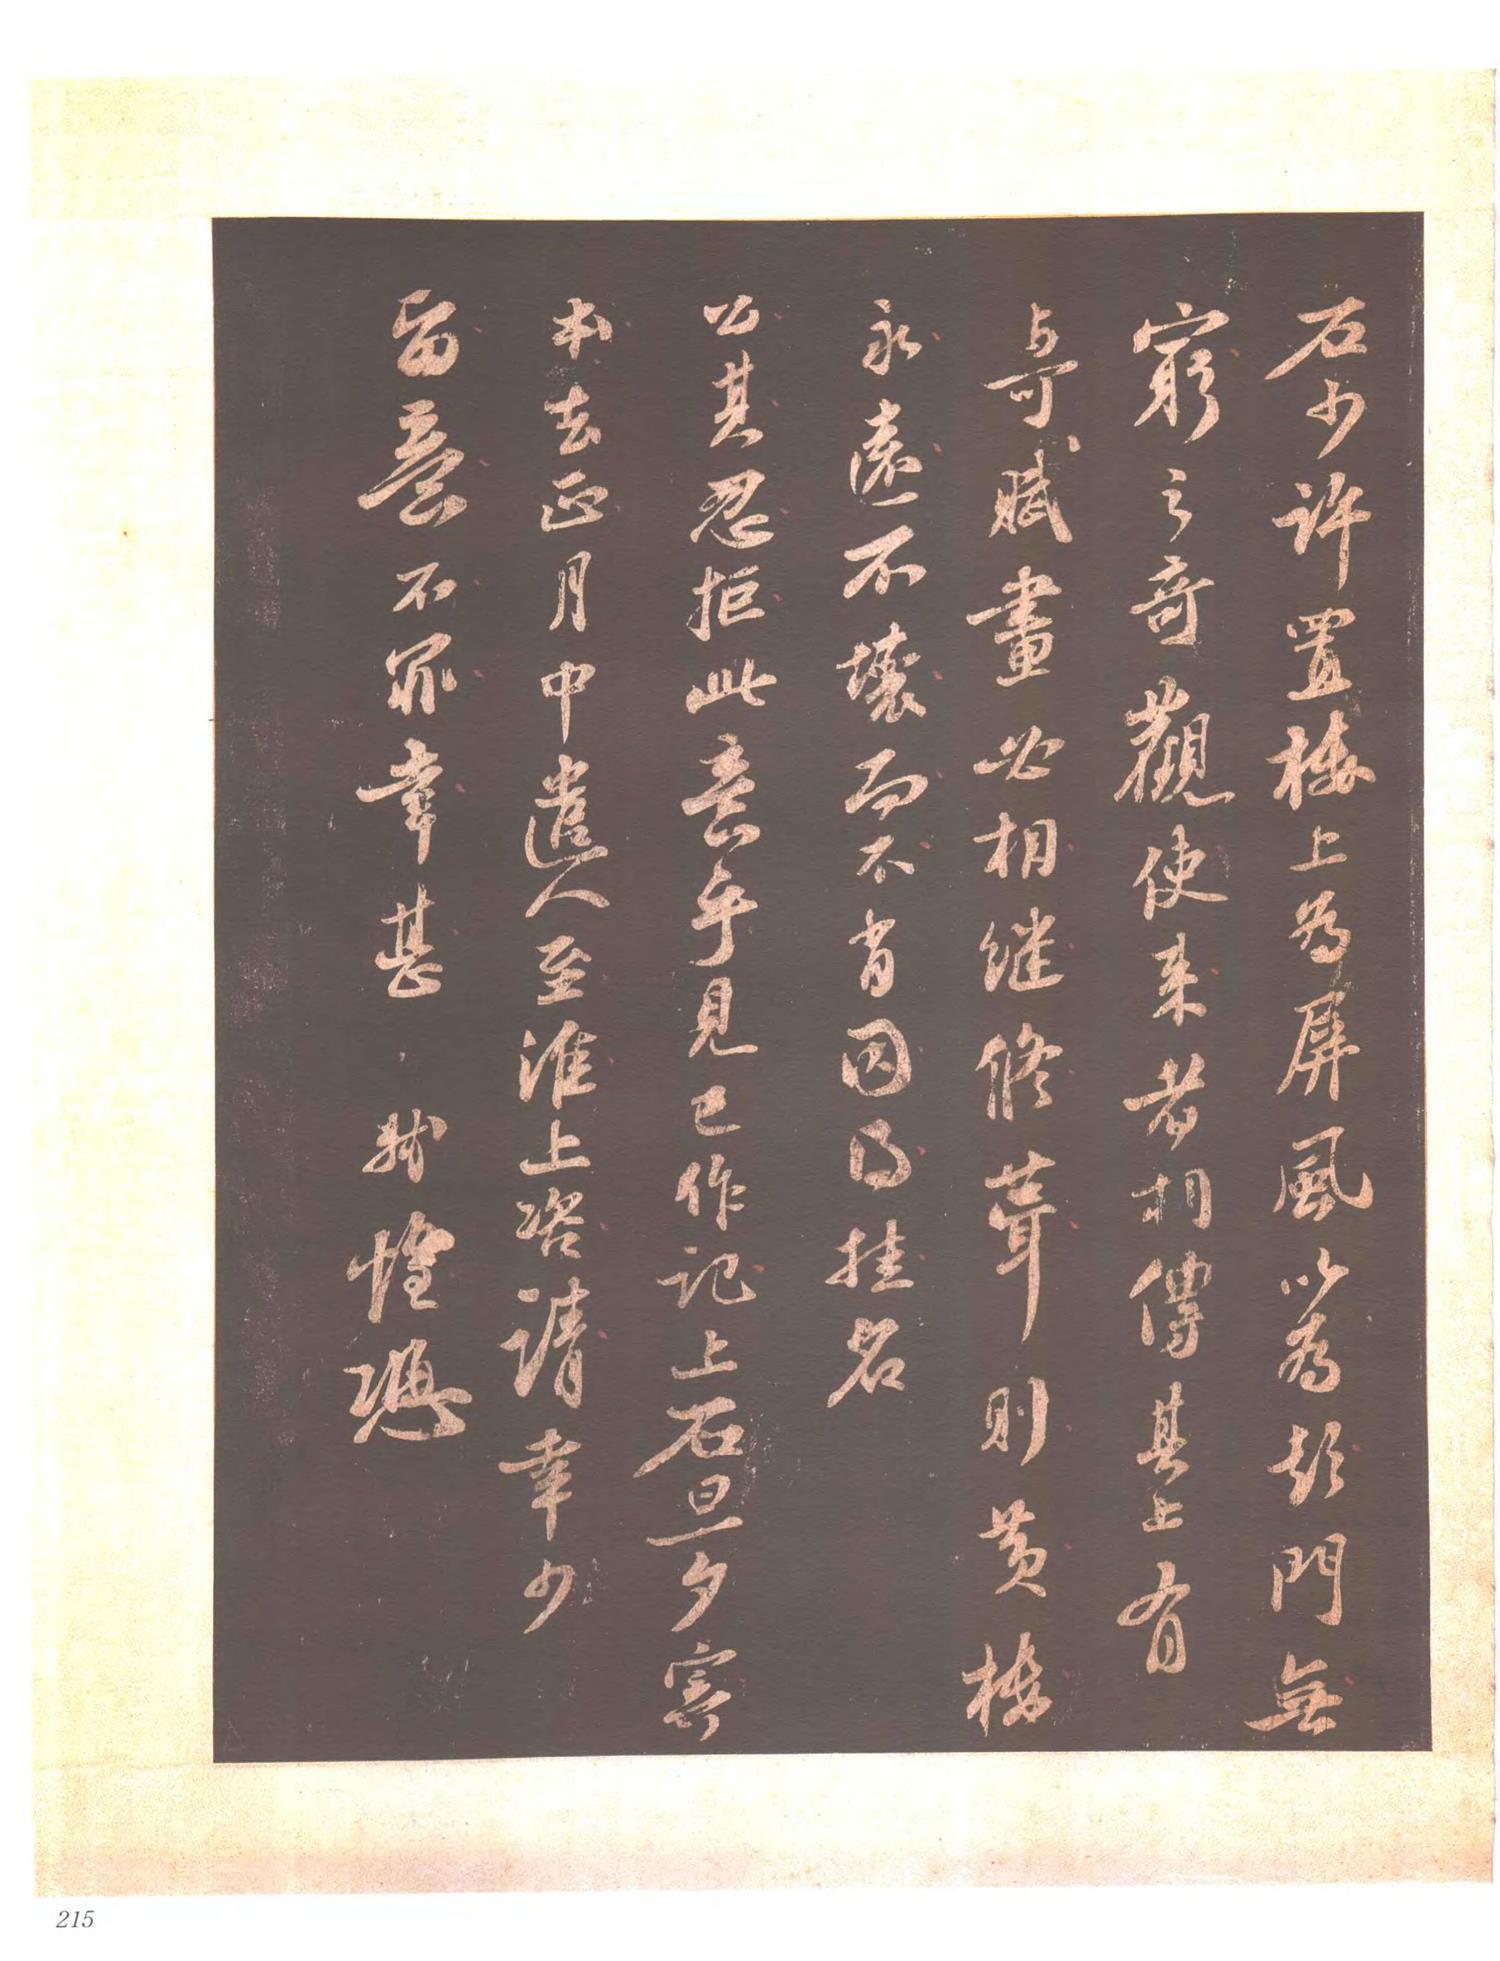 石少許置樓上為屏風以為彭門無
窮之奇觀使來者相傳其上有
與可賦畫必相繼修葺則黃樓
永遠不壞而不肖因得挂名
公其忍拒此意乎見已作記上石旦夕寄
本去正月中遣人至淮上咨請幸少
留意不罪幸甚 軾惶恐
215